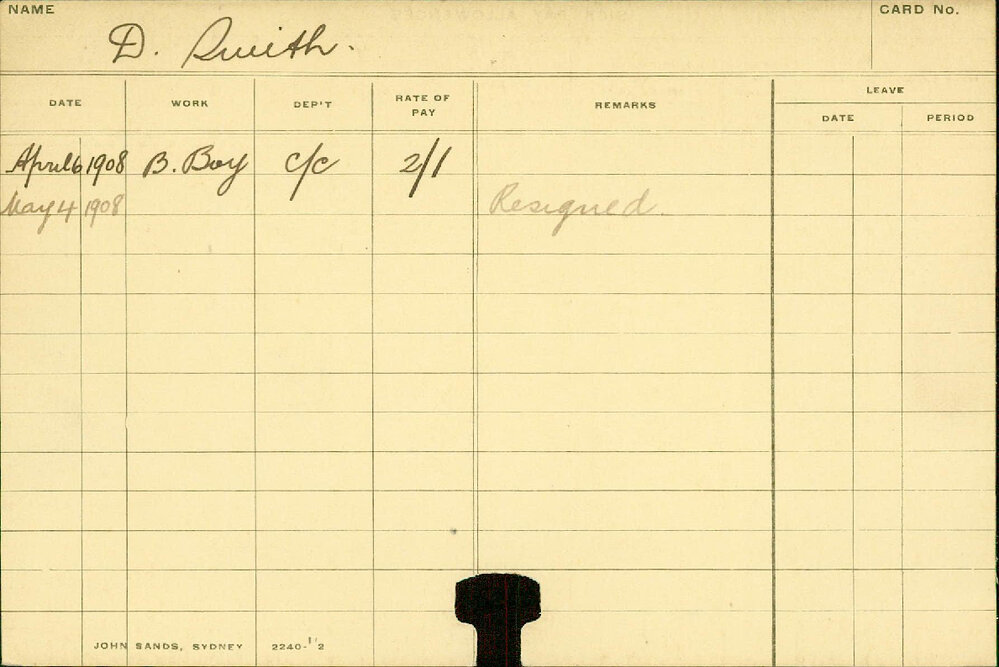 NAME
CARD No.
D. Smith.
DATE WORK DEP'T RATE OF PAY REMARKS LEAVE
DATE PERIOD
April 6 1908 B. Boy C/C 2/1
May 4 1908 Resigned.
JOHN SANDS, SYDNEY 2240-1'2